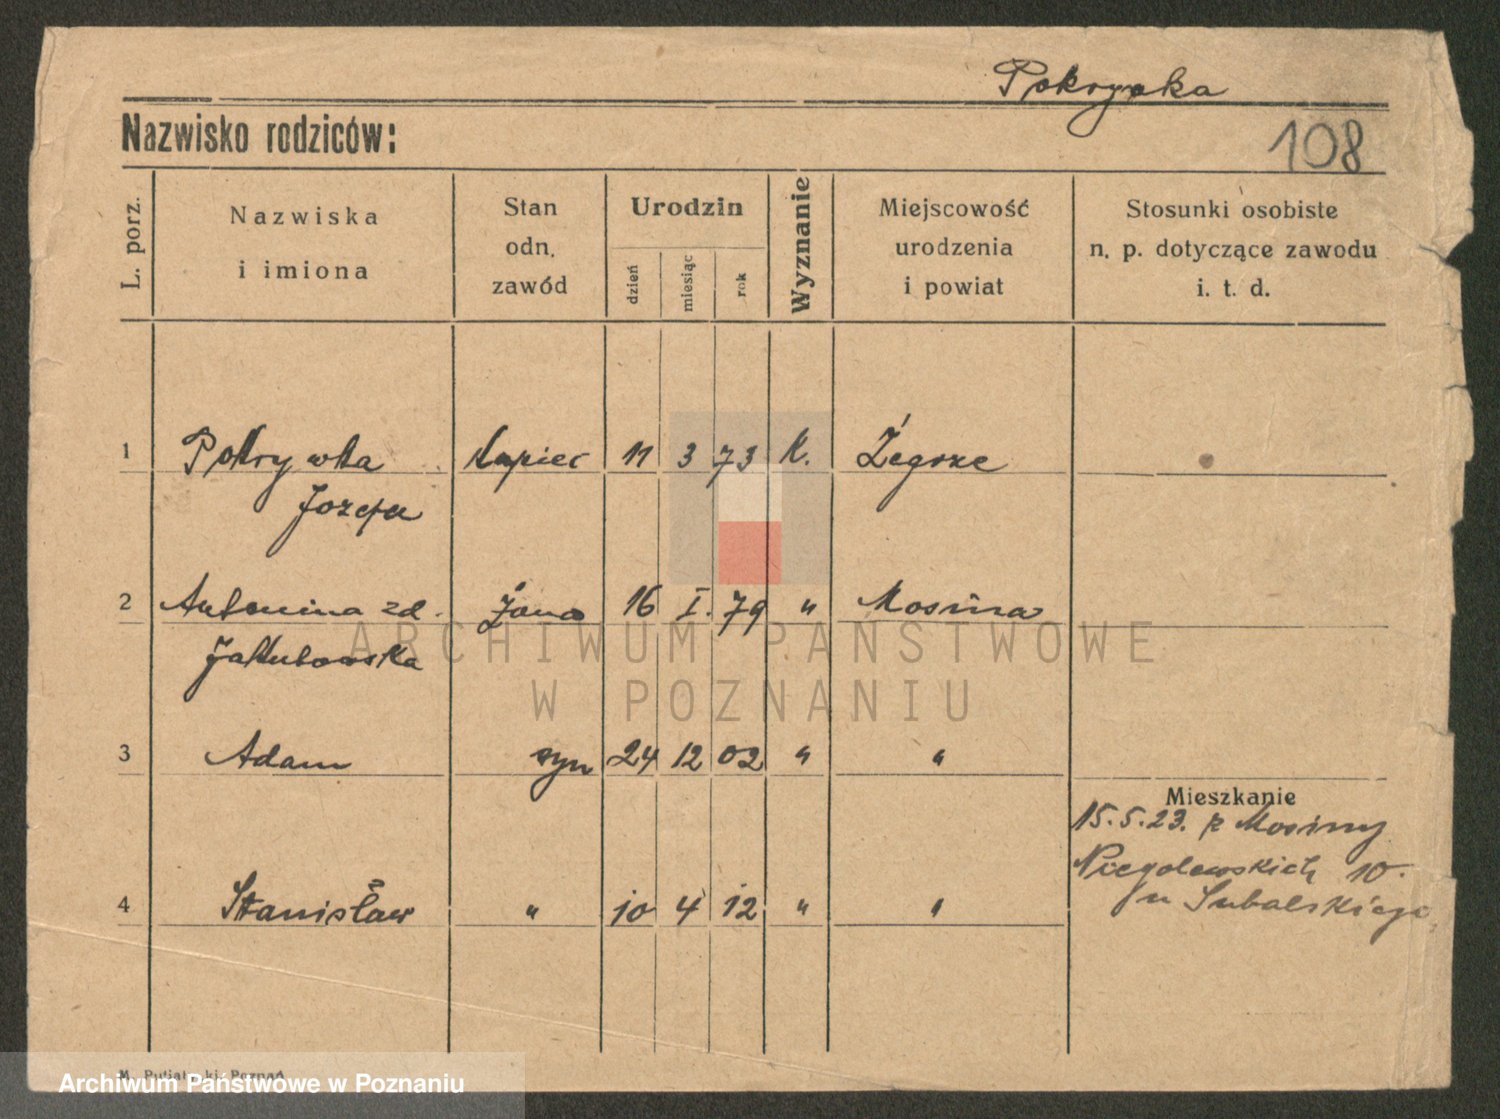 Pokrywka
Nazwisko rodziców:
108
L. porz.
Nazwiska
i imiona
Stan
odn.
zawód
Urodzin
dzień
miesiąc
rok
Wyznanie
Miejscowość
urodzenia
i powiat
Stosunki osobiste
n. p. dotyczące zawodu
i. t. d.
1 Pokrywka Kupiec 11 3 73 K. Żegrze
Józefa
2 Antonina zd. Żona 16 I. 79 " Mosina
Jakubowska
3 Adam syn 24 12 02 " "
Mieszkanie
15.5.23. z Mosiny
Niegolewskich 10.
4 Stanisław " 10 4 12 " "
ARCHIWUM PAŃSTWOWE
W POZNANIU
Poznań
Archiwum Państwowe w Poznaniu